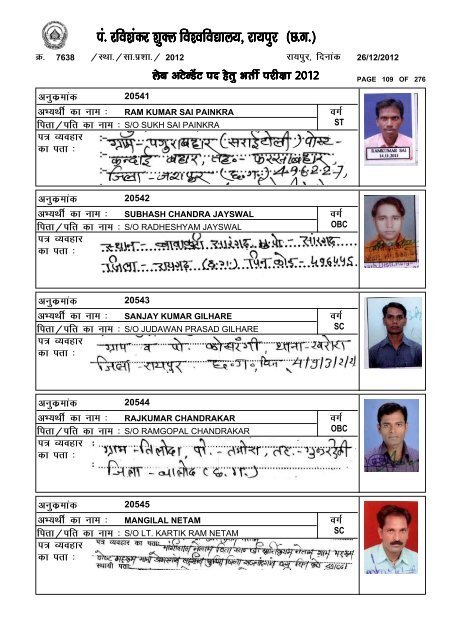 पं. रविशंकर शुक्ल विश्वविद्यालय, रायपुर (छ.ग.)
क्र. 7638 /स्था./सा.प्रशा./ 2012 रायपुर, दिनांक 26/12/2012
लेब अटेन्डेंट पद हेतु भर्ती परीक्षा 2012 PAGE 109 OF 276
अनुकमांक 20541
अभ्यर्थी का नाम : RAM KUMAR SAI PAINKRA वर्ग
पिता/पति का नाम : S/O SUKH SAI PAINKRA ST
पत्र व्यवहार : ग्राम- पगुराबहार (सराईटोली) पोस्ट-
का पता :
जिला - जशपुर (छ.ग.) 496227,
RAMKUMAR SAI
अनुकमांक 20542
अभ्यर्थी का नाम : SUBHASH CHANDRA JAYSWAL वर्ग
पिता/पति का नाम : S/O RADHESHYAM JAYSWAL OBC
पत्र व्यवहार सारंगढ़ पो.- सारंगढ़
का पता : जिला- रायगढ़ (छ.ग.) पिन कोड- 496445
अनुकमांक 20543
अभ्यर्थी का नाम : SANJAY KUMAR GILHARE वर्ग
पिता/पति का नाम : S/O JUDAWAN PRASAD GILHARE SC
पत्र व्यवहार ग्राम व पो. थाना-खरोरा
का पता : जिला-रायपुर छ.ग., पिन
अनुकमांक 20544
अभ्यर्थी का नाम : RAJKUMAR CHANDRAKAR वर्ग
पिता/पति का नाम : S/O RAMGOPAL CHANDRAKAR OBC
पत्र व्यवहार : ग्राम-तिलोदा, पो.- तमोरा, तह.- गुन्डरदेही
का पता : जिला - बालोद (छ.ग.)
अनुकमांक 20545
अभ्यर्थी का नाम : MANGILAL NETAM वर्ग
पिता/पति का नाम : S/O LT. KARTIK RAM NETAM SC
पत्र व्यवहार पत्र व्यवहार का पता:
का पता :
स्थायी पता